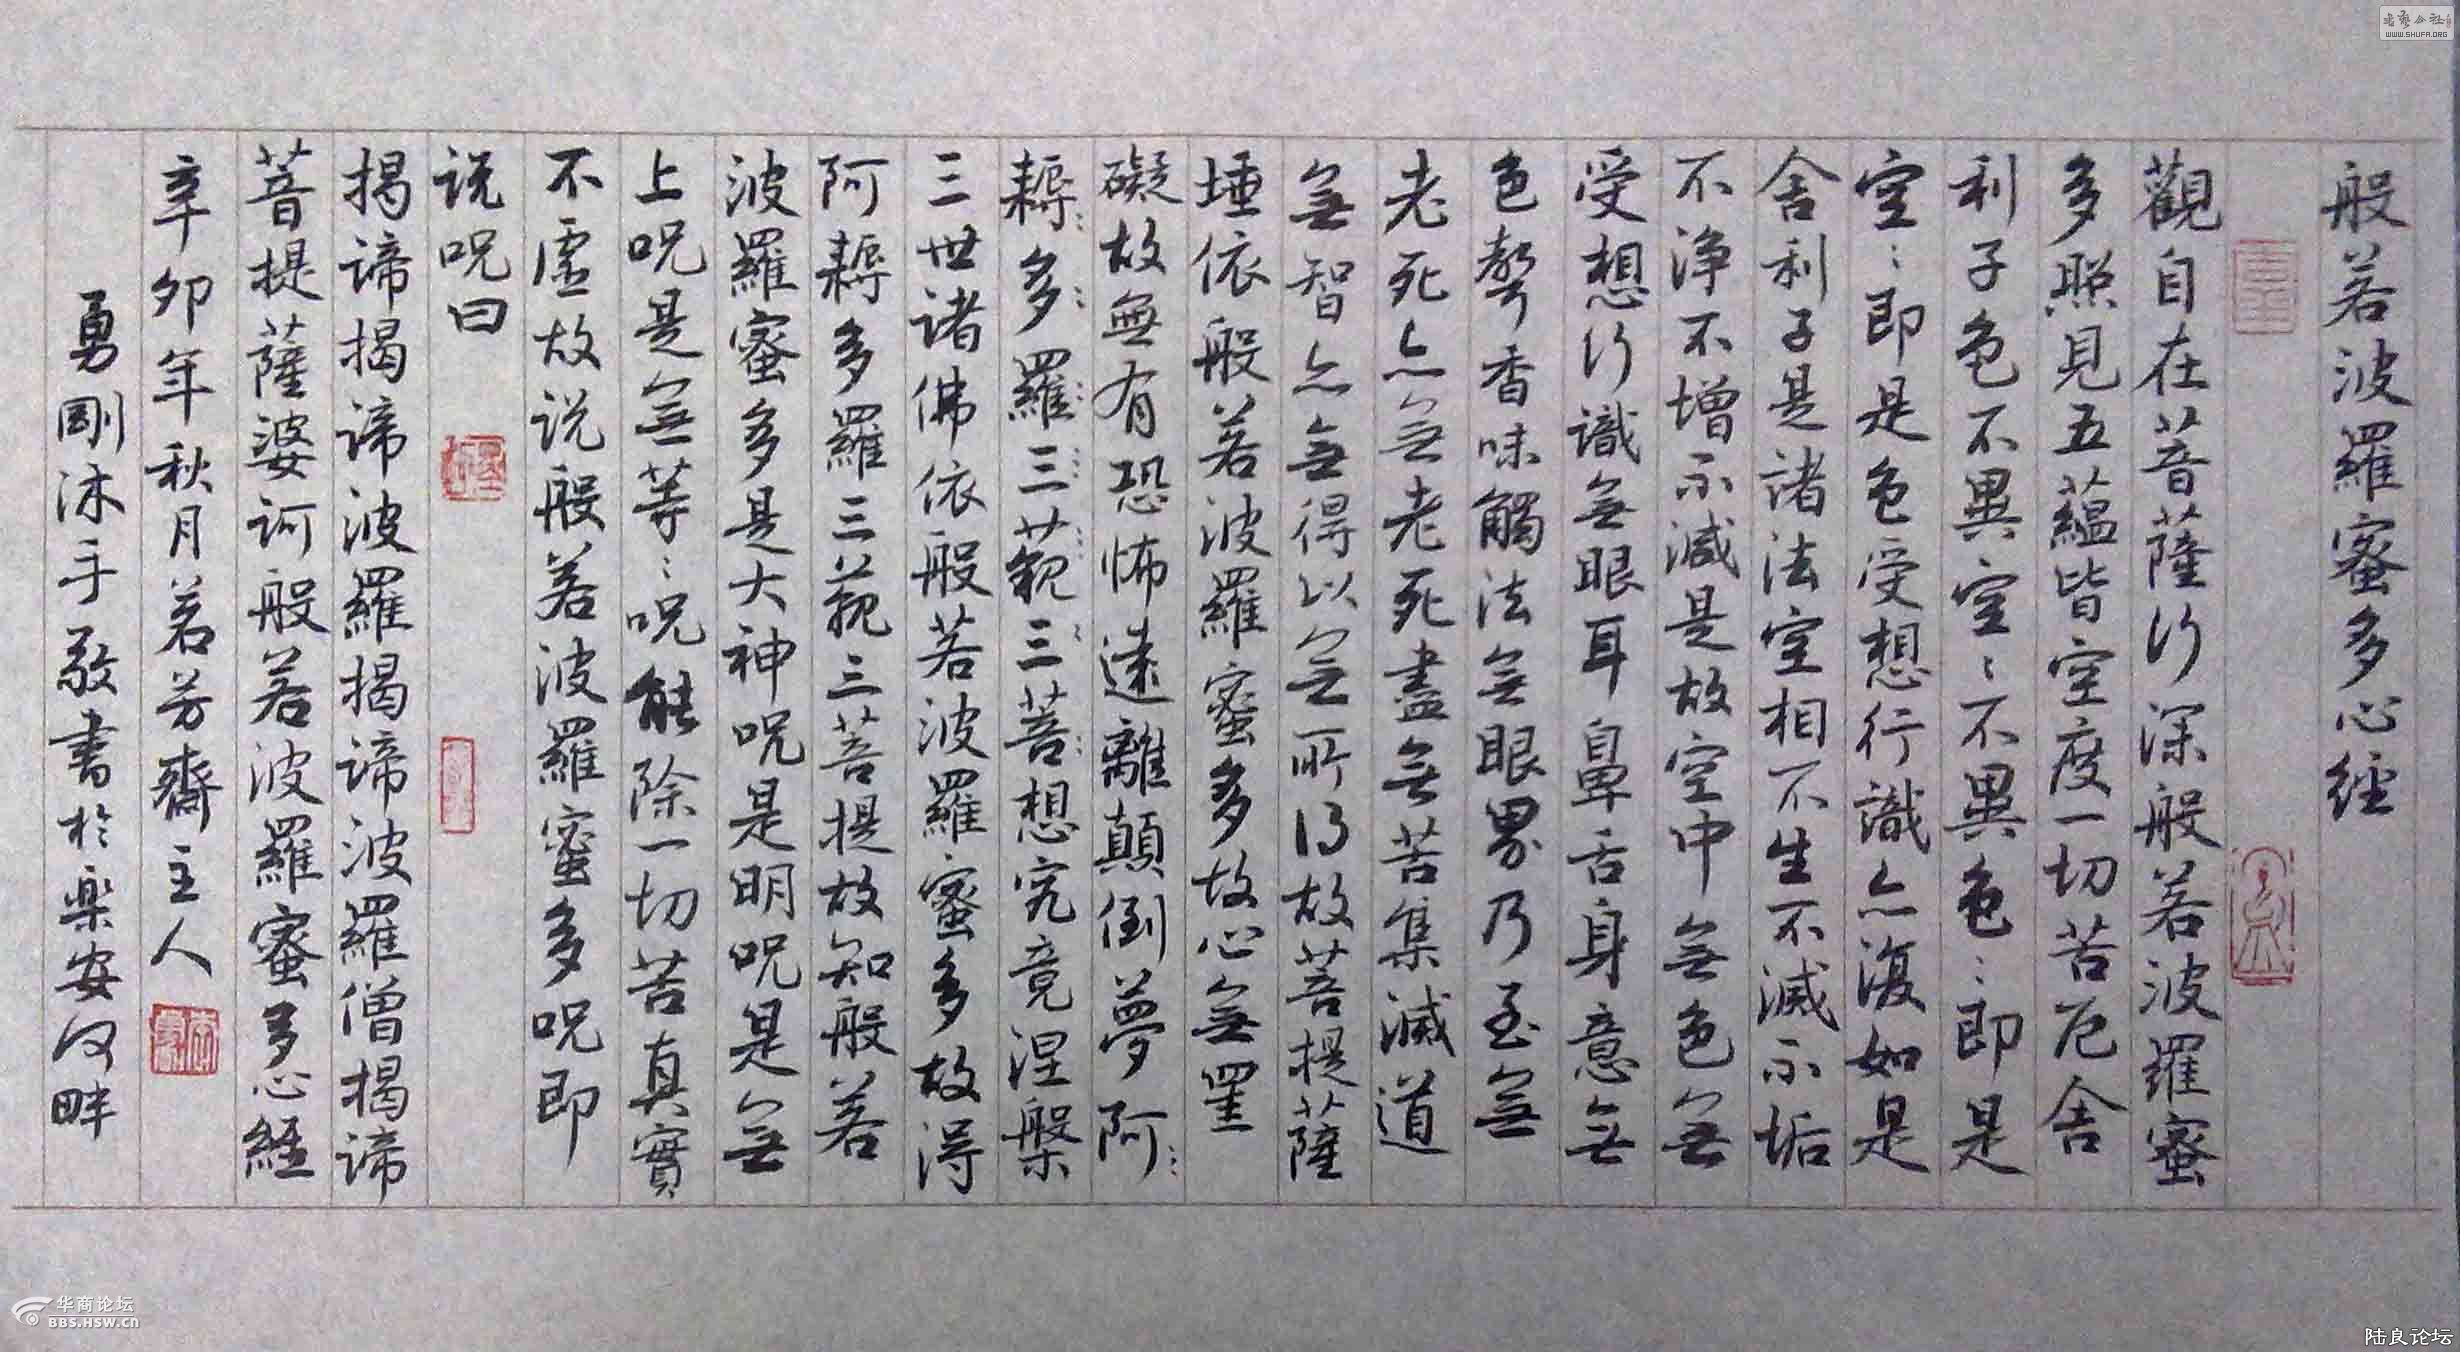 般若波羅蜜多心經
觀自在菩薩行深般若波羅蜜
多照見五蘊皆空度一切苦厄舍
利子色不異空〻不異色〻即是
空〻即是色受想行識亦復如是
舍利子是諸法空相不生不滅不垢
不淨不增不減是故空中無色無
受想行識無眼耳鼻舌身意無
色聲香味觸法無眼界乃至無
老死亦無老死盡無苦集滅道
無智亦無得以無所得故菩提薩
埵依般若波羅蜜多故心無罣
礙故無有恐怖遠離顛倒夢阿
耨多羅三藐三菩想究竟涅槃
三世諸佛依般若波羅蜜多故得
阿耨多羅三藐三菩提故知般若
波羅蜜多是大神呪是明呪是無
上呪是無等〻呪能除一切苦真實
不虛故説般若波羅蜜多呪即
説呪曰
揭諦揭諦波羅揭諦波羅僧揭諦
菩提薩婆訶般若波羅蜜多心經
辛卯年秋月茗芳齋主人
勇剛沐手敬書於楽安河畔
WWW.SHUFA.ORG
华商论坛
BBS.HSW.CN
陆良论坛